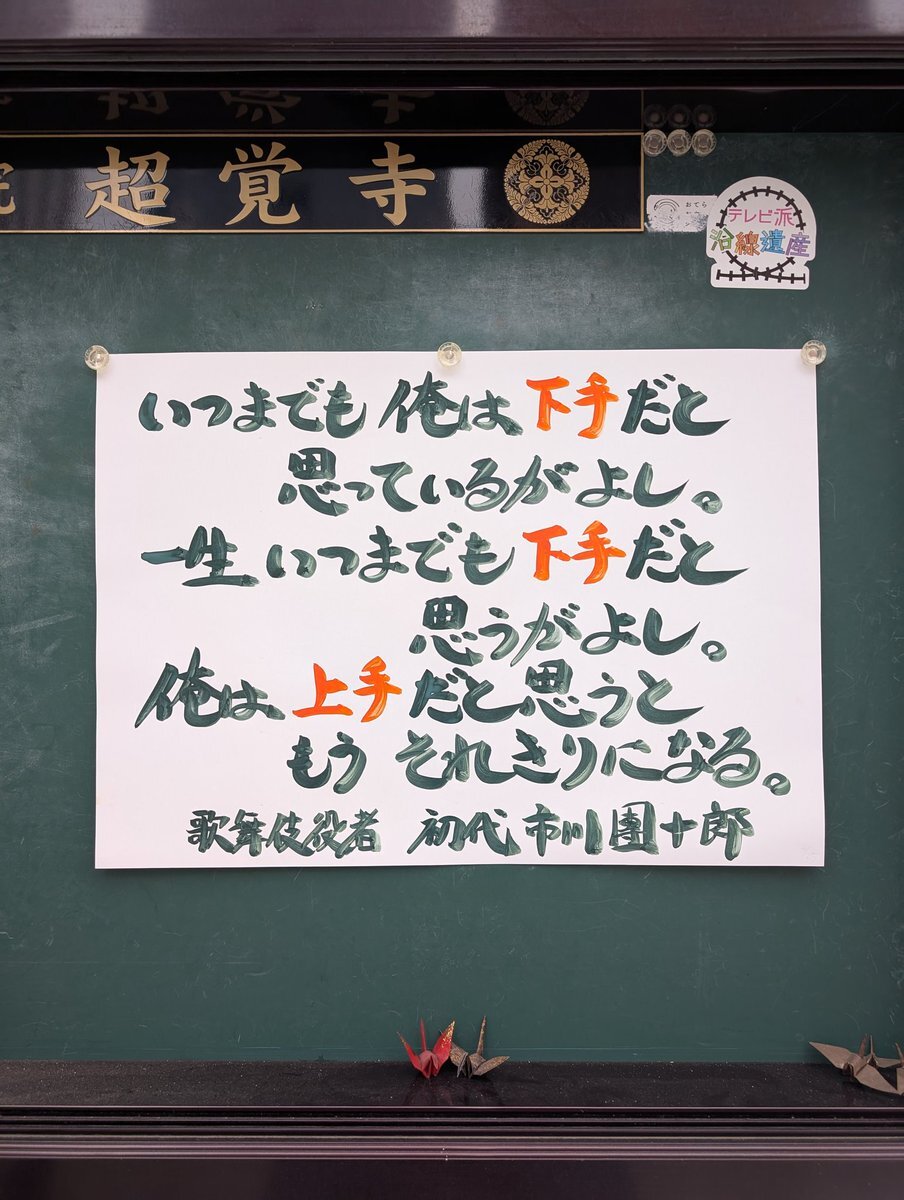 超覚寺
おてら
テレビ派
沿線遺産
いつまでも 俺は 下手だと
思っているがよし。
一生 いつまでも 下手だと
思うがよし。
俺は 上手だと思うと
もう それきりになる。
歌舞伎役者 初代 市川團十郎